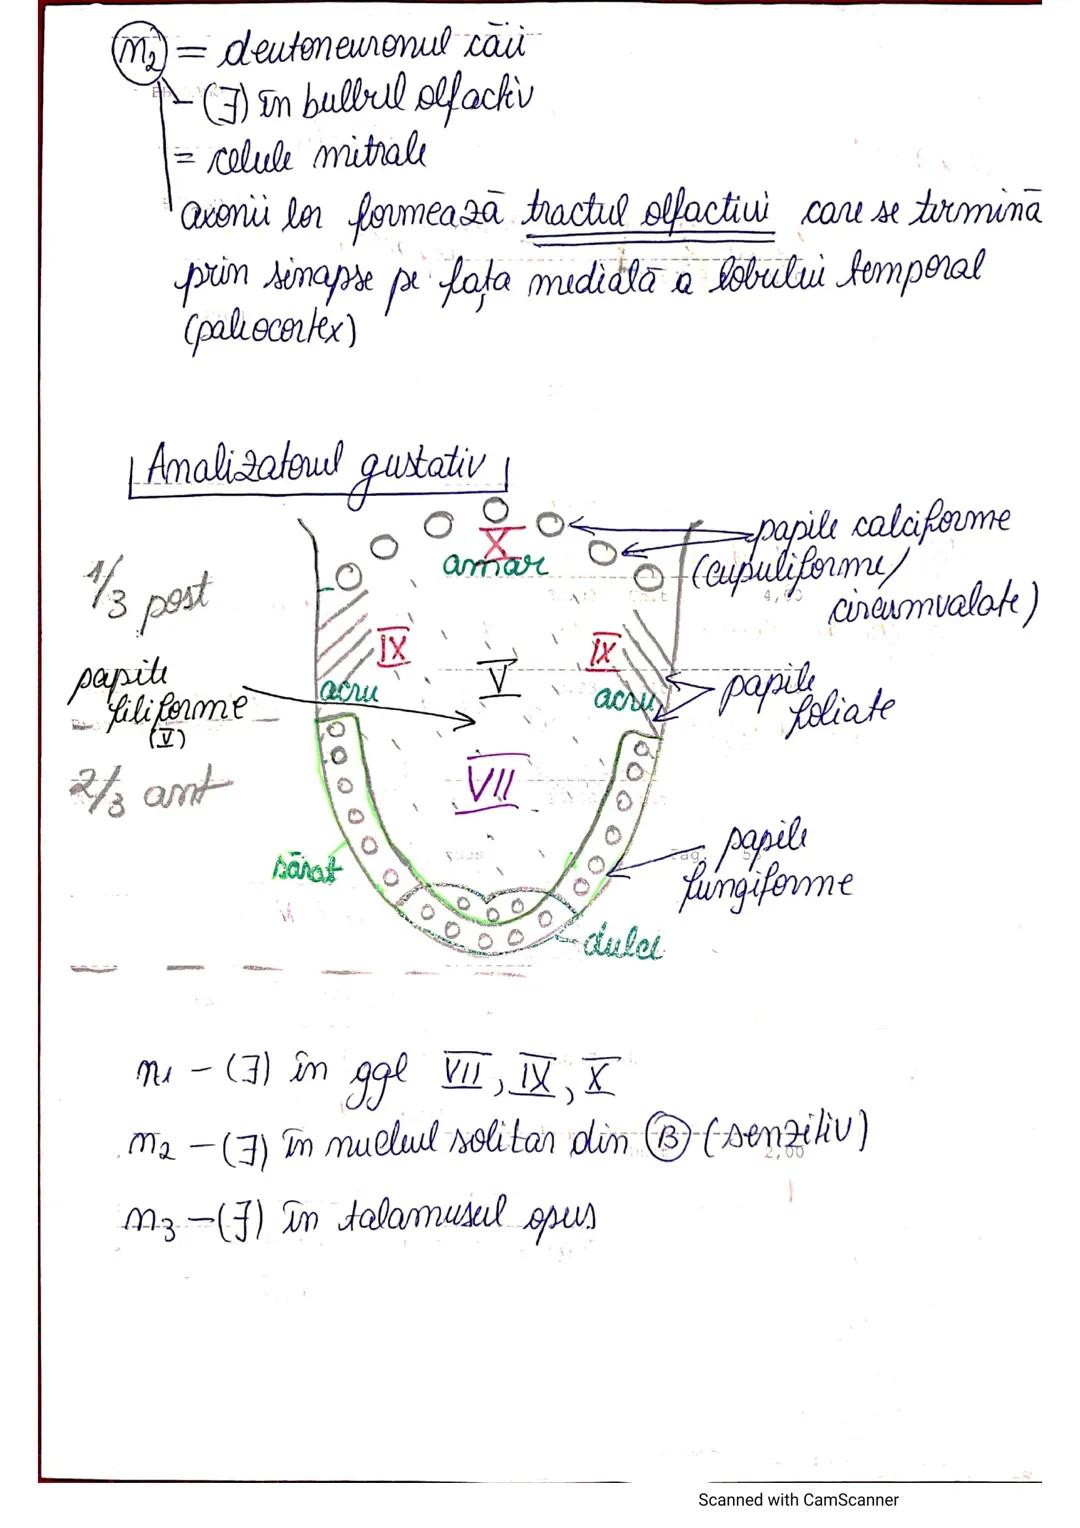 n2 = deutoneuronul căii
- (∃) în bulbul olfactiv
= celule mitrale
axonii lor formează tractul olfactiv care se termină
prin sinapse pe fața medială a lobului temporal
(paleocortex)
Analizatorul gustativ
X
amar
papile calciforme
(cupuliforme/
circumvalate)
1/3 post
IX
IX
V
acru
acru
papile
filiforme
(V)
papile
foliate
2/3 ant
VII
sărat
papile
fungiforme
dulce
n1 - (∃) în ggl VII, IX, X
n2 - (∃) în nucleul solitar din B (senzitiv)
n3 - (∃) în talamusul opus
Scanned with CamScanner